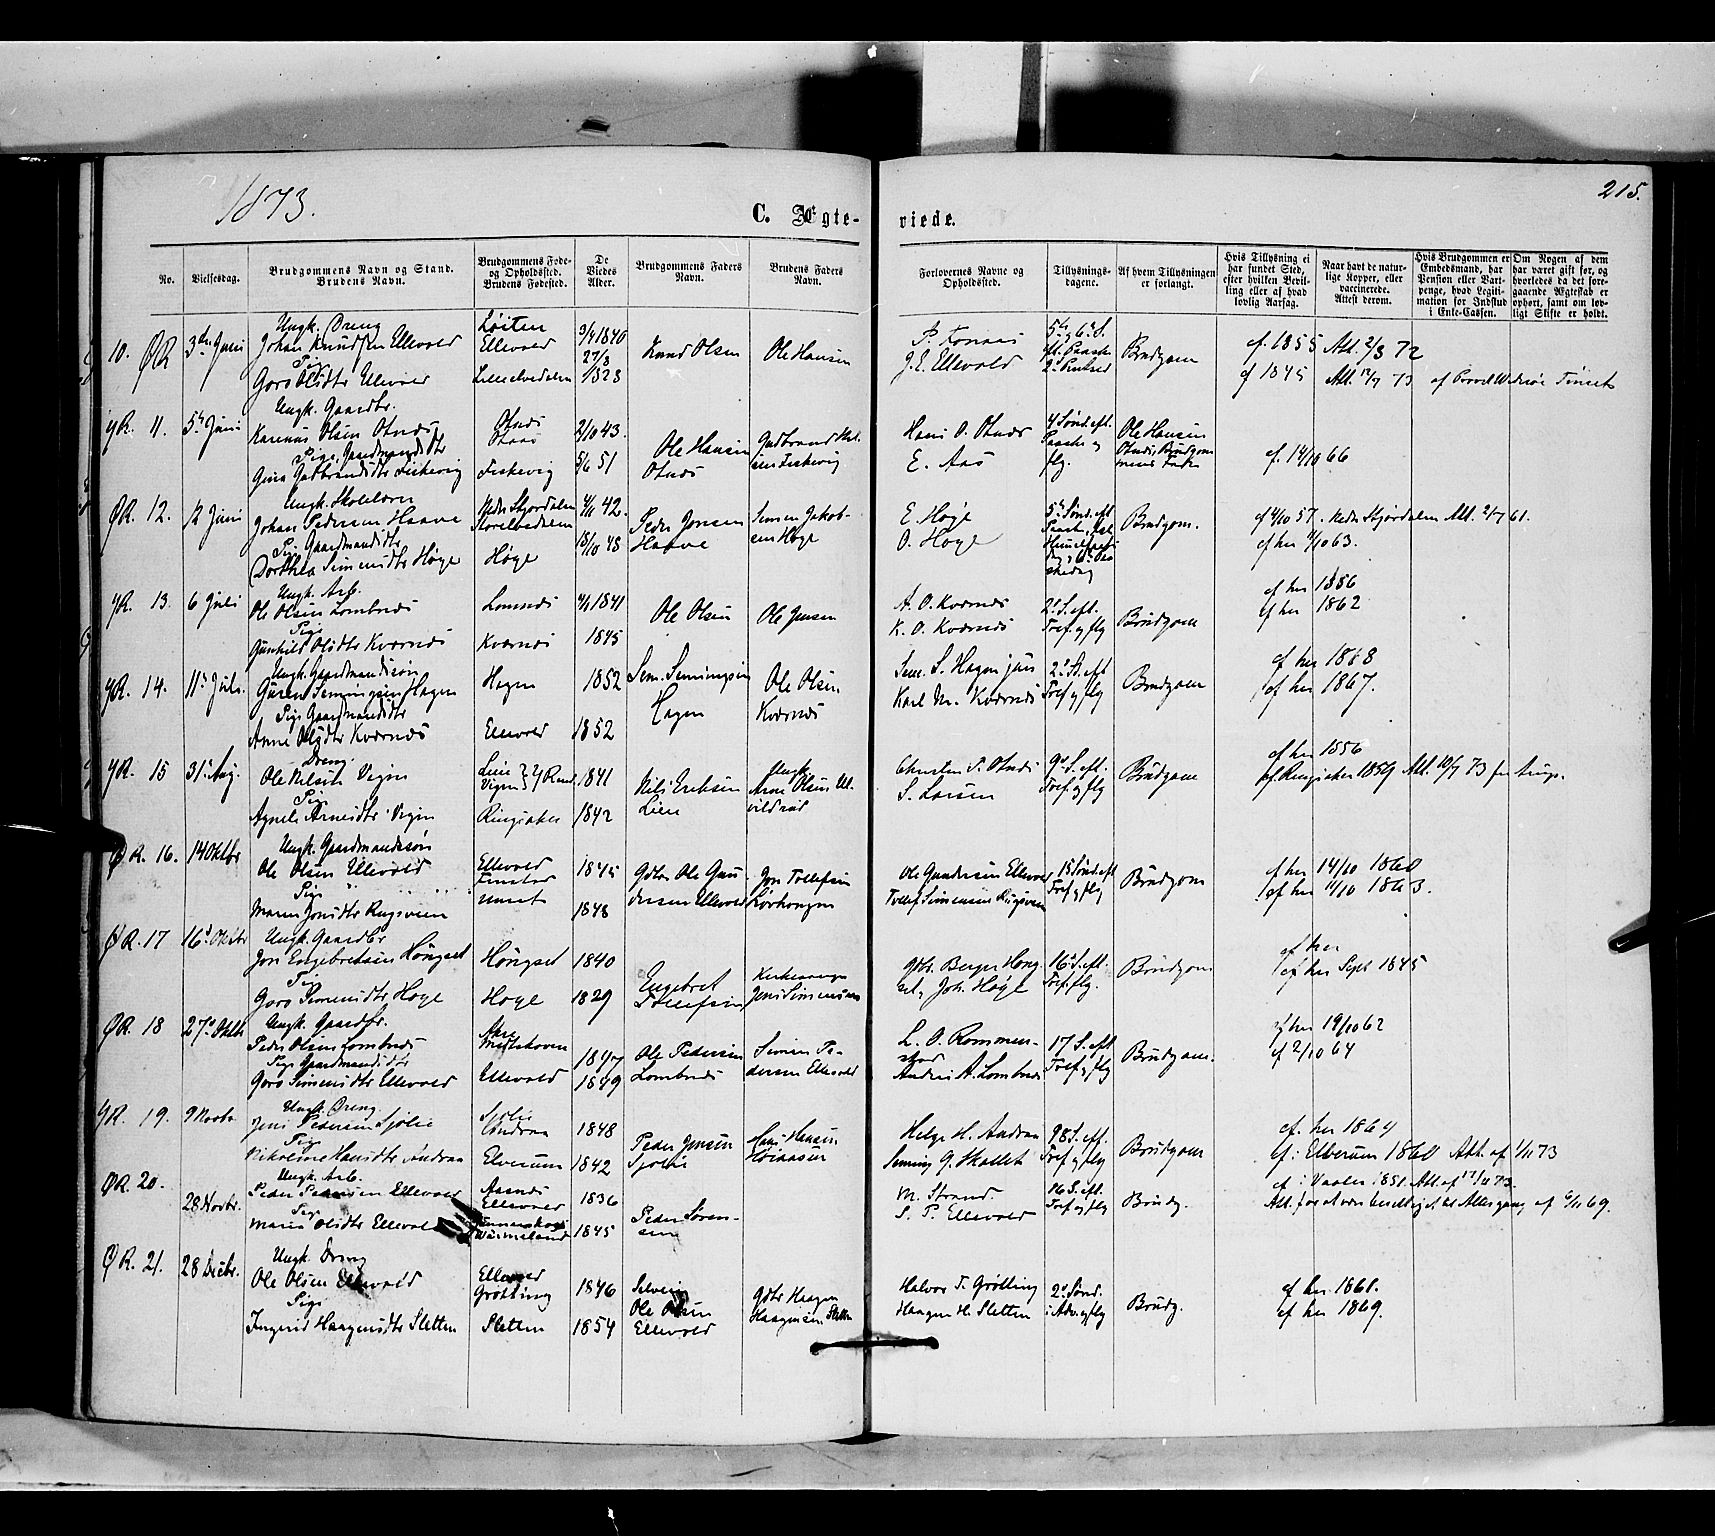 1873.
C. Ægte-
viede.
215.
No.
Vielsesdag.
Brudgommens Navn og Stand.
Brudens Navn.
Brudgommens Føde-
og Opholdssted.
Brudens Fødested.
De
Viedes
Alder.
Brudgommens Faders
Navn.
Brudens Faders
Navn.
Forlovernes Navne og
Opholdssted.
Tillysnings-
dagene.
Af hvem Tillysningen
er forlangt.
Hvis Tillysning ei
har fundet Sted,
efter hvilken Bevil-
ling eller af hvad
lovlig Aarsag.
Naar havt de natur-
lige Kopper, eller
vaccinerede.
Attest derom.
Hvis Brudgommen er
Embedsmand, har
Pension eller Vart-
penge, hvad Legiti-
mation for Indskud
i Enke-Cassen.
Om Nogen af dem
har været gift før, og
hvorledes da det fore-
gaaende Ægteskab er
ophørt, samt om lov-
ligt Skifte er holdt.
10. ØR 3die Juni
Ungk. Dreng
Johan Knudsen Ellevold
Pige
Goro Olsdtr Ellevold
Løiten
Ellevold
Lilleelvedalen
9/4 1840
27/3
1828
Knud Olsen
Ole Hansen
P. Fornæs
J. E. Ellevold
Brudgom
cf. 1855 Att. 2/3 72
cf 1845 Att. 12/7 73
YR. 11. 5te Juni
Ungk. Gaardbr.
Karenus Olsen Otnes
Pige Gaardmandsdtr
Gina Gudbrandsdtr Fiskevig
Otnes
Fiskevig
2/10 43.
5/6 51
Ole Hansen
Otnes
Gudbrand
sen Fiskevig
Hans O. Otnes
E. Aas
4 Sønd. eft.
Paaske og
flg.
Ole Hansen
Otnes, Brudgom
mens Fader
cf. 14/10 66
ØR. 12. 12 Juni
Ungk. Skolelærer
Johan Pedersen Haave
Pige Gaardmandsdtr
Dorthea Simensdtr Høge
Nedre Stjørdalen
Storelvedalen
Høge
4/11 42.
18/10 48
Peder Jonsen
Haave
Simen Jakob-
sen Høge
E. Høge
O. Høge
5te Sønd. eft
Brudgom.
cf 4/10 57. Nedre Stjørdalen Att. 2/7 61.
cf her 4/10 63.
YR. 13. 6 Juli
Ungk. Arb.
Ole Olsen Lombnes
Pige
Gunhild Olsdtr Kværnes
Lomnes
Kværnes
4/1 1841
1845
Ole Olsen
Ole Jensen
A. O. Kværnes
K. O. Kværnes
2. S. eft.
Tref. og flg
Brudgom
cf her 1856
cf her 1862
YR. 14. 11te Juli
Ungk. Gaardmandssøn
Gøran Semmingsen Hagen
Pige Gaardmandsdtr
Anne Olsdtr Kværnes
Hagen
Ellevold
1852
1852
Sem. Semmingsen
Hagen
Ole Olsen
Kværnes
Sem. S. Hagen jun
Karl M. Kværnes
2. S. eft
Tref og flg
Brudgom
cf her 1868
cf her 1867.
YR. 15 31te Aug.
Dreng
Ole Nilsen Vigen
Pige
Agnete Arnesdtr Vigen
Lien
Vigen
Ringsaker
1841
1842
Nils Eriksen
Lien
Ungk.
Arne Olsen Ul-
vildrud
Christen T. Otnes
S. Larsen
9. S. eft.
Tref. og flg
Brudgom
cf her 1856
cf Ringsaker 1859 Att. 10/7 73
ØR. 16. 14 Oktbr
Ungk. Gaardmandssøn
Ole Olsen Ellevold
Pige
Maren Jonsdtr Rugsveen
Ellevold
1845
1848
Gdbr. Ole Gun
dersen Ellevold
Jon Tollefsen
Ole Gundersen Ellevold
Tollef Simensen Rugsveen
15 Sønd. eft
Tref og flg
Brudgom
cf her 14/10 1860
cf her 11/10 1863.
ØR. 17 16d Oktbr
Ungk. Gaardbr
Jon Engebretsen Høngset
Pige
Goro Simensdtr Høge
Høngset
Høge
1840
1829
Engebret
Tollefsen
Jens Simensen
Gdbr. Berger Høng
set, Joh. Høge
16. S. eft.
Tref. flg.
Brudgom
cf her
cf her Sept 1845
ØR. 18 27de Oktbr
Ungk. Gaardbr.
Peder Olsen Lombnes
Pige Gaardmandsdtr
Goro Simensdtr Ellevold
Midtskoven
Ellevold
1847
1849
Ole Pedersen
Lombnes
Simen Pe-
dersen Ellevold
L. O. Rommun-
stad
Anders A. Lombnes
17 S. eft
Tref og flg
Brudgom.
cf her 19/10 62
cf 2/10 64
YR. 19. 9 Novbr
Ungk. Dreng
Jens Pedersen Sjølie
Pige
Nikoline Hansdtr Andraa
Sjølie
Andraa
Elverum
1848
1842
Peder Jensen
Sjølie
Hans Hansen
Helge H. Andraa
Semming G. Skallet
Tref og flg
Brudgom
cf. her 1864
cf. i Elverum 1860 Att. af 1/11 73
ØR. 20. 28 Novbr.
Ungk. Arb.
Peder Pedersen Ellevold
Pige
Maria Olsdtr Ellevold
Aasnes
Ellevold
Wermeland
1836
1845
Peder Søren-
sen
M. Strand.
S. P. Ellevold
16 S. eft.
Tref og flg
Brudg.
cf. i Vaaler 1851. Att. af 17/11 73.
ØR. 21. 28 Decbr.
Ungk. Dreng
Ole Olsen Ellevold
Pige
Ingerid Haagensdtr Sletten
Ellevold
Grøtting
Sletten
1846
1854
Selveier
Ole Olsen
Ellevold
Gdbr Haagen
Haagensen Sletten
Halvor T. Grøtting
Haagen H. Sletten
2. Sønd.
i Adv. og flg
Brudg.
cf her 1861.
cf her 1869.